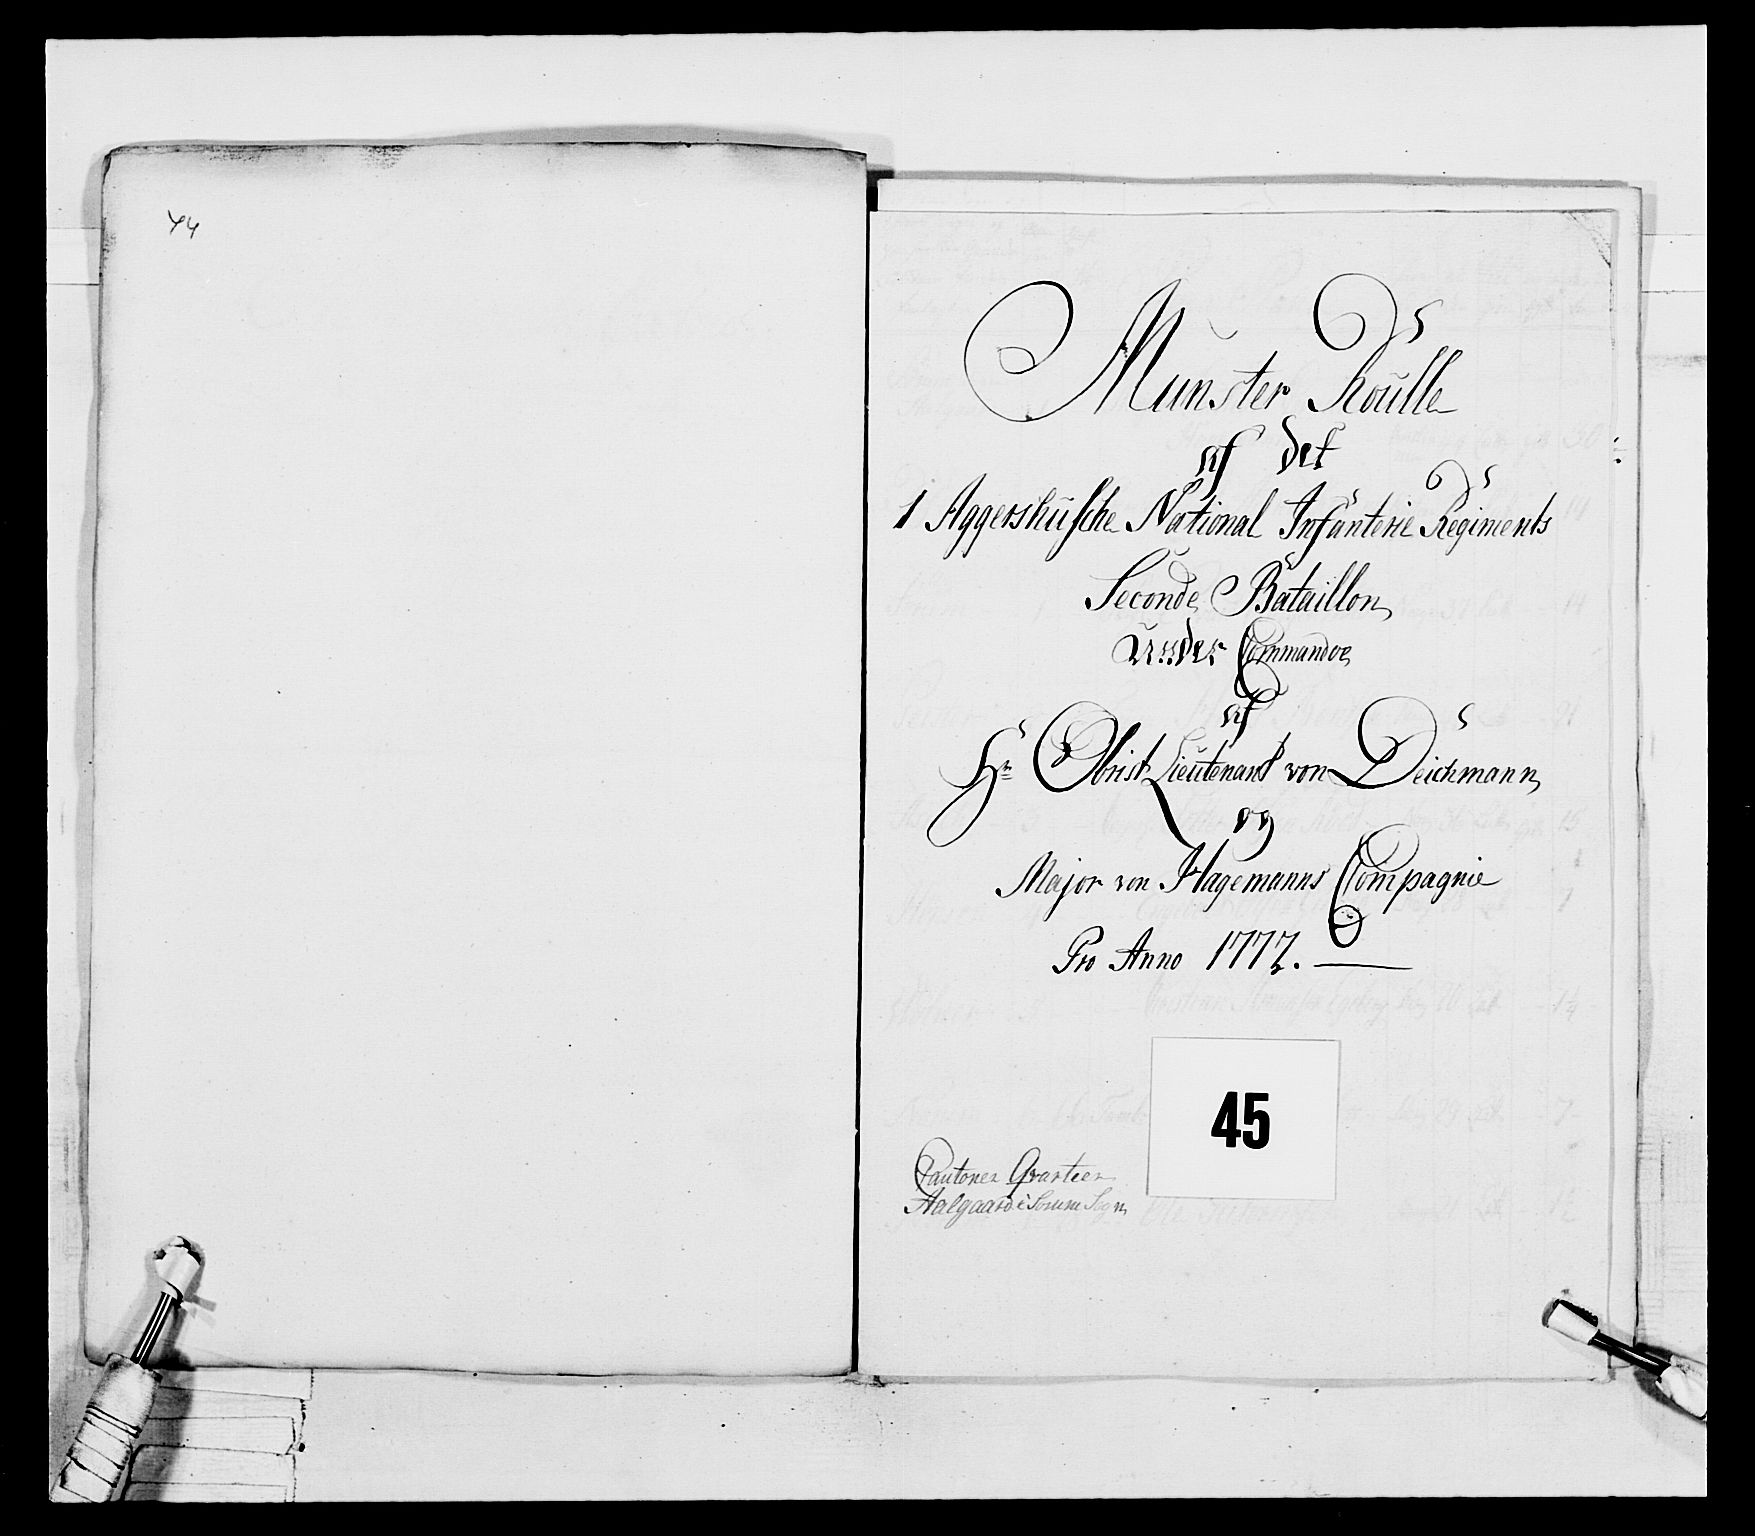 44
Munster Roulle
af det
1 Aggershusche National Infanterie Regiments
Seconde Bataillon
under Commandoe
af
Hr Obrist Lieutenant von Deichmann
og
Major von Hagemanns Compagnie
Pro Anno 1772.
45
Cantoner Qvarteer
Aalgaard i Sørum Sogn